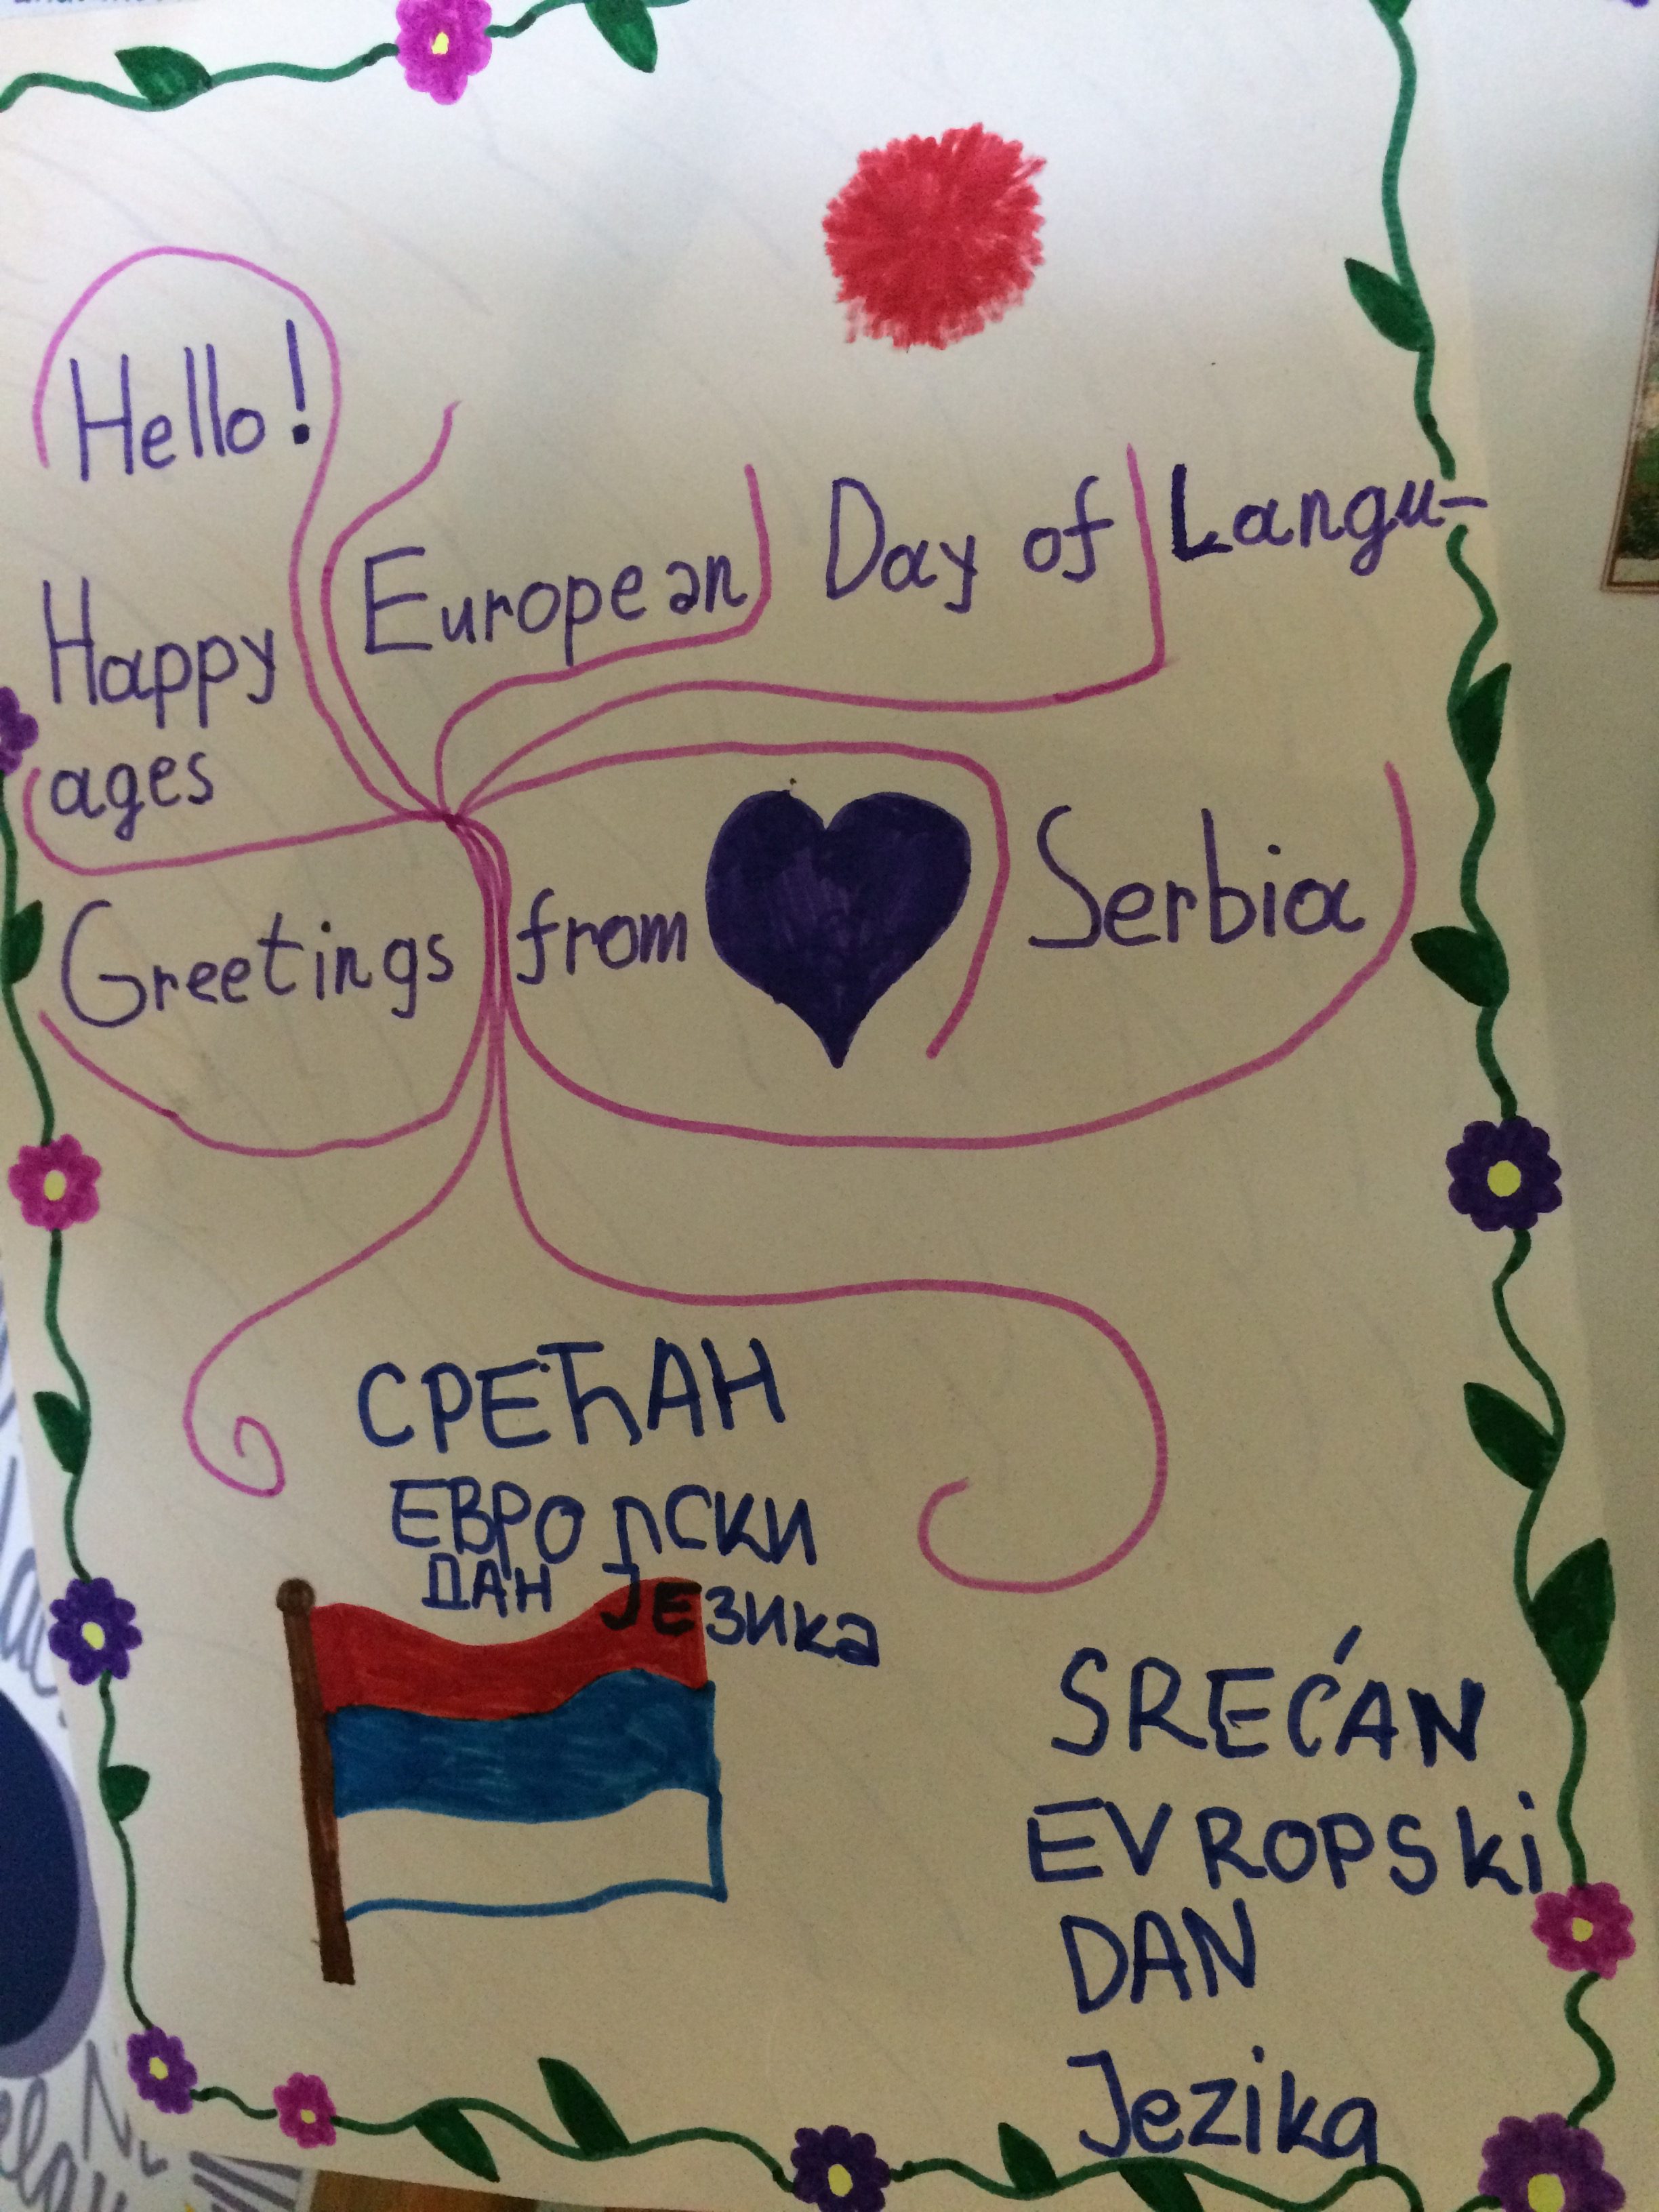 Hello!
Happy European Day of Langu-
ages
Greetings from Serbia
СРЕЋАН
ЕВРОПСКИ
ДАН ЈЕЗИКА
SREĆAN
EVROPSki
DAN
Jezika